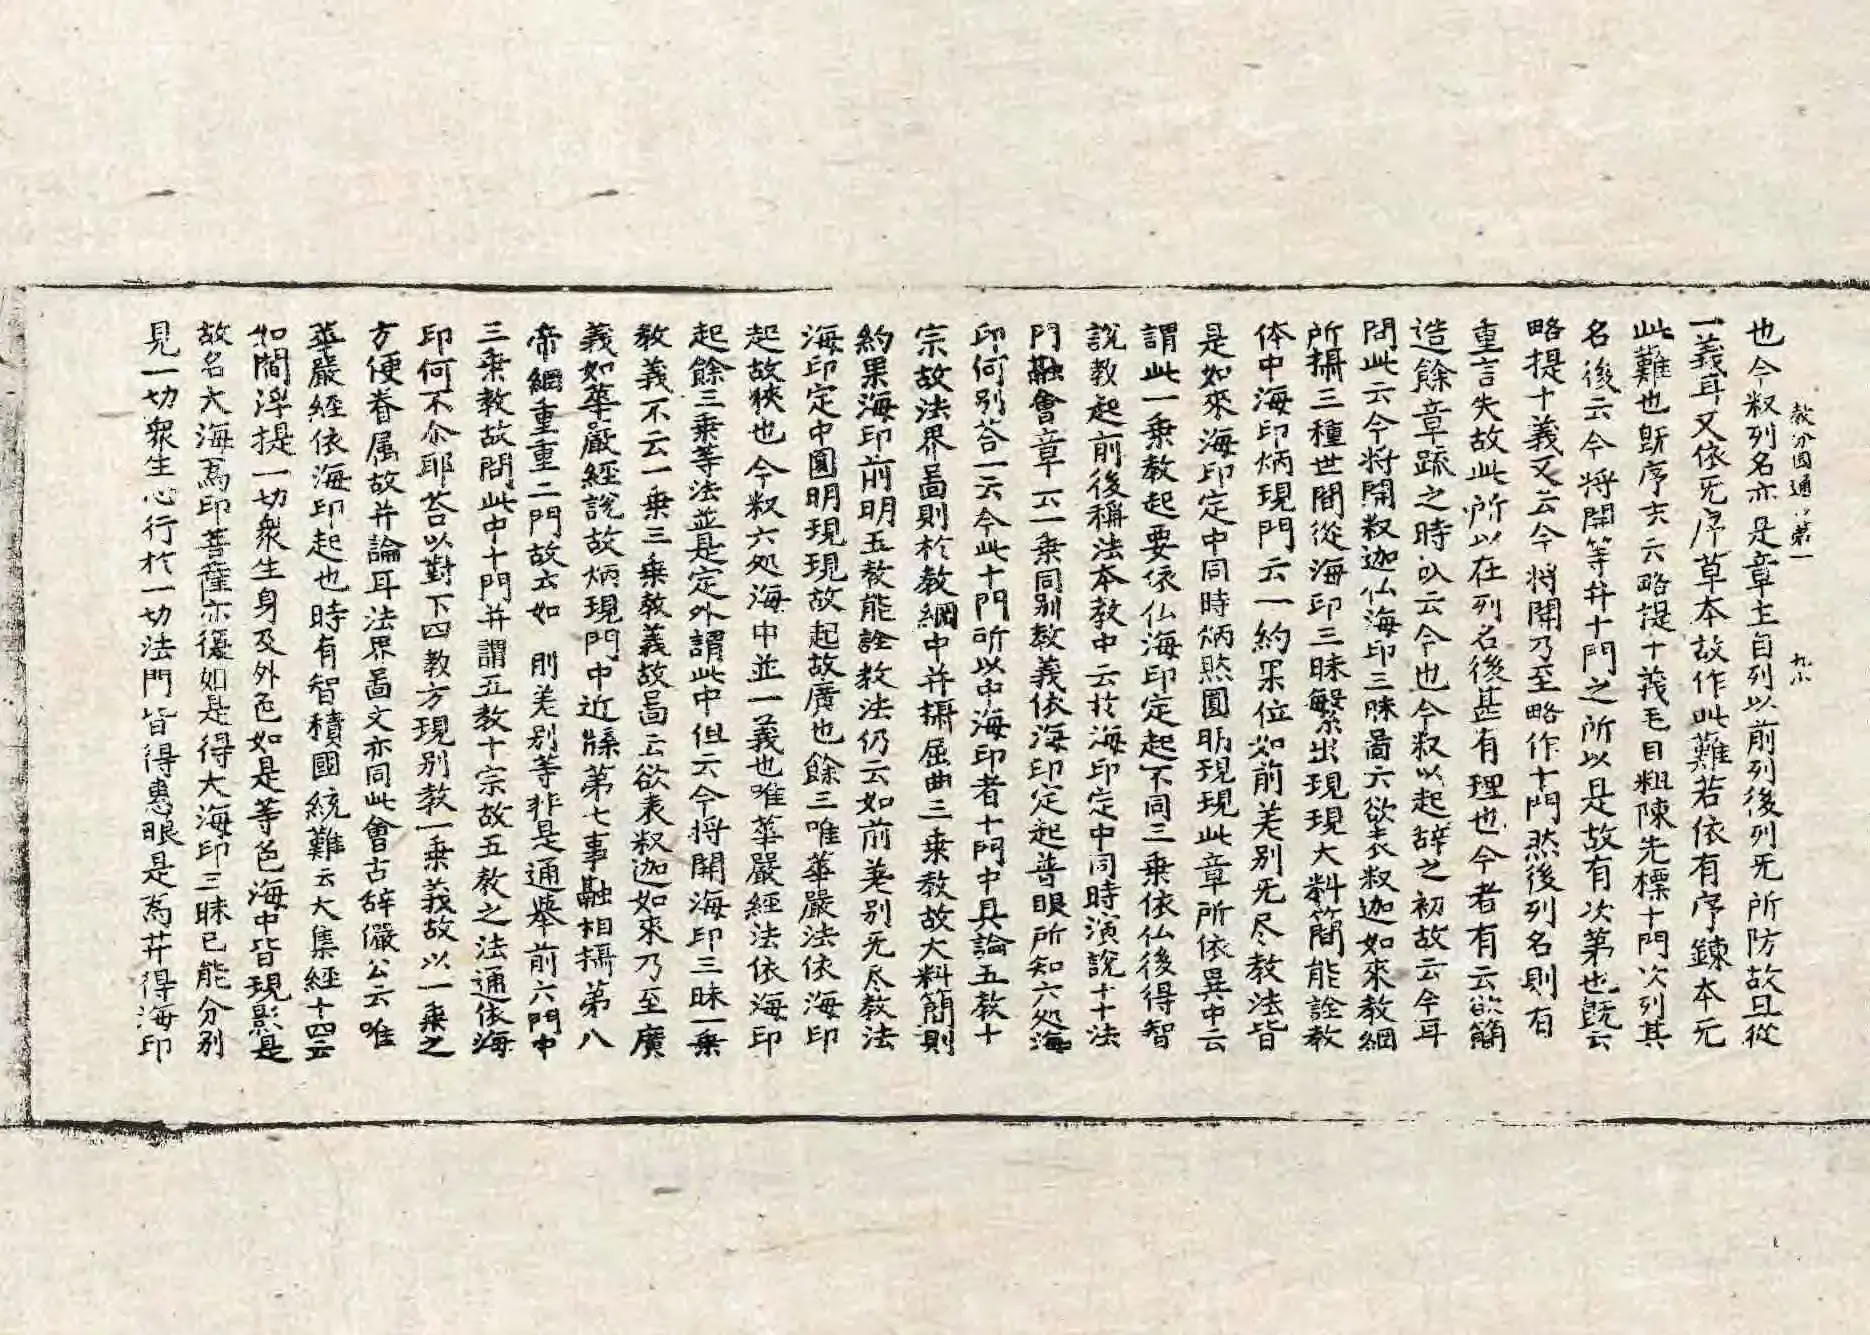 教分圓通 第一 九 小
也今釈列名亦是章主自列以前列後列无所防故且從
一義耳又依无序草本故作此難若依有序鍊本无
此難也旣序六云略提十義毛目粗陳先標十門次列其
名後云今將開等幷十門之所以是故有次第也旣云
略提十義又云今將開乃至略作十門然後列名則有
重言失故此所以在列名後甚有理也今者有云欲簡
造餘章疏之時以云今也今釈以起辝之初故云今耳
問此云今將開釈迦仏海印三昧啚六欲表釈迦如來教網
所攝三種世間從海印三昧繁出現現大料簡能詮教
体中海印炳現門云一約果位如前差別无尽教法皆
是如來海印定中同時炳然圓明現現此章所依異中云
謂此一乗教起要依仏海印定起不同三乗依仏後得智
說教起前後稱法本教中云於海印定中同時演說十十法
門融會章云一乗同別教義依海印定起普眼所知六処海
印何別荅一云今此十門所以中海印者十門中具論五教十
宗故法界啚則於教網中并攝屈曲三乗教故大料簡則
約果海印前明五教能詮教法仍云如前差別无尽教法
海印定中圓明現現故起故廣也餘三唯華嚴法依海印
起故狹也今釈六処海中並一義也唯華嚴經法依海印
起餘三乗等法並是定外謂此中但云今將開海印三昧一乗
教義不云一乗三乗教義故啚云欲表釈迦如來乃至廣
義如華嚴經說故炳現門中近牒第七事融相攝第八
帝網重重二門故云如 前差別等非是通擧前六門中
三乗教故問此中十門并謂五教十宗故五教之法通依海
印何不尒耶荅以對下四教方現別教一乗義故以一乗之
方便眷属故并論耳法界啚文亦同此會古辝儼公云唯
華嚴經依海印起也時有智積國統難云大集經十四云
如閻浮提一切衆生身及外色如是等色海中皆現影是
故名大海爲印菩薩亦復如是得大海印三昧已能分別
見一切衆生心行於一切法門皆得惠眼是爲菩得海印